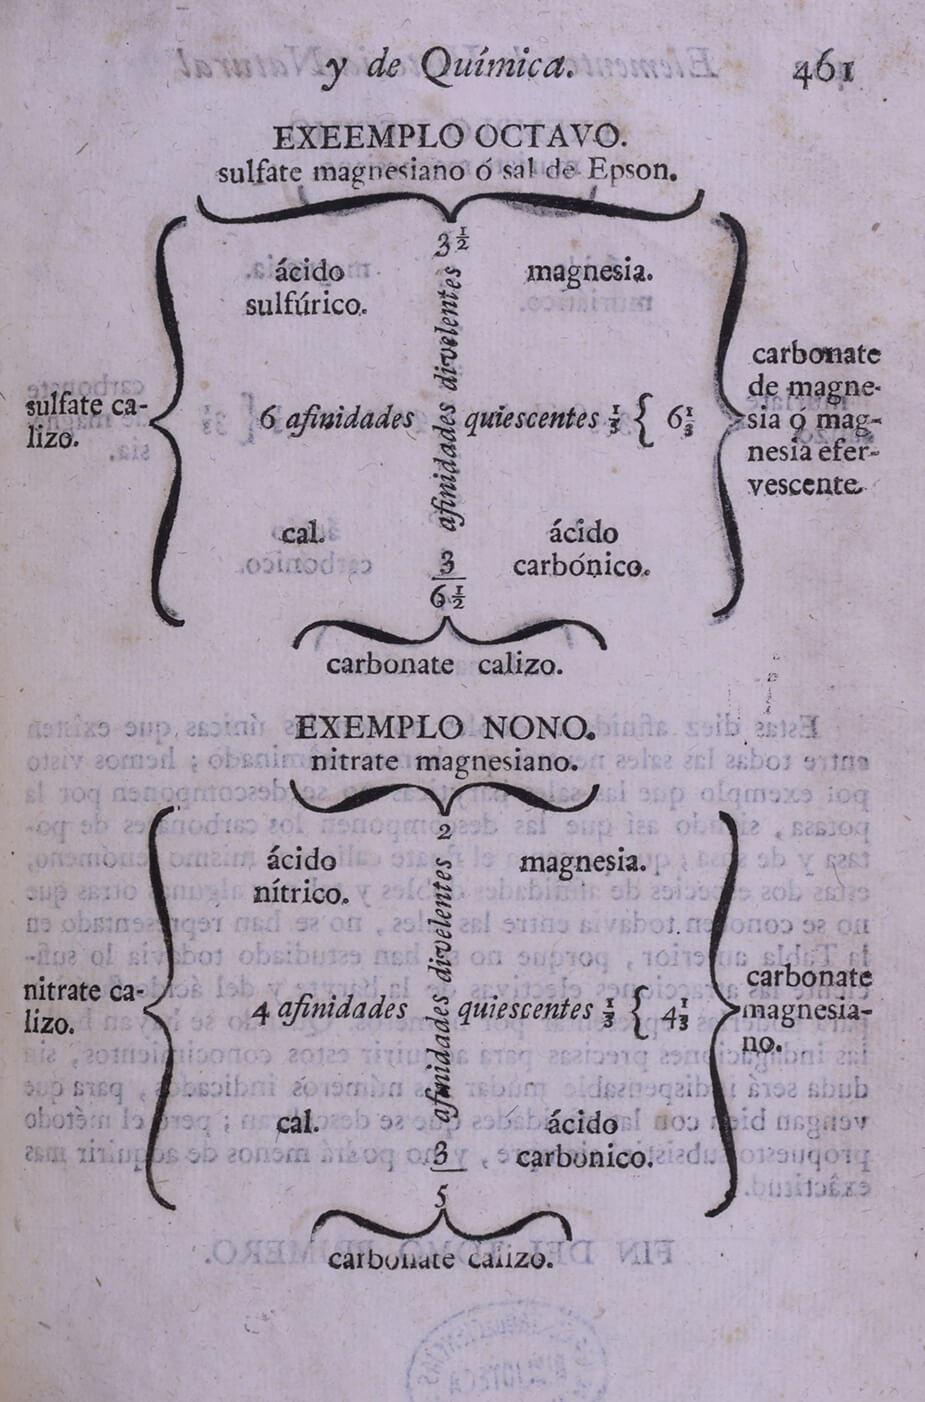 y de Química. 461
EXEEMPLO OCTAVO.
sulfate magnesiano ó sal de Epson.
3 1/2
ácido
sulfúrico.
magnesia.
afinidades divelentes
sulfate ca-
lizo.
6 afinidades quiescentes 1/3 { 6 1/3
carbonate
de magne-
sia ó mag-
nesia efer-
vescente.
cal.
ácido
carbónico.
3
6 1/2
carbonate calizo.
EXEMPLO NONO.
nitrate magnesiano.
2
ácido
nítrico.
magnesia.
afinidades divelentes
nitrate ca-
lizo.
4 afinidades quiescentes 1/3 { 4 1/3
carbonate
magnesia-
no.
cal.
ácido
carbonico.
3
5
carbonate calizo.